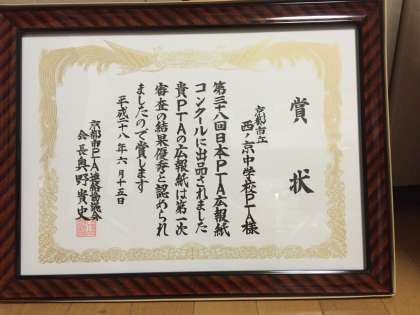 賞状
京都市立
西ノ京中学校PTA様
第三十八回日本PTA広報紙
コンクールに出品されました
貴PTAの広報紙は第一次
審査の結果優秀と認められ
ましたので賞します
平成二十八年六月十五日
京都市PTA連絡協議会
会長奥野貴史